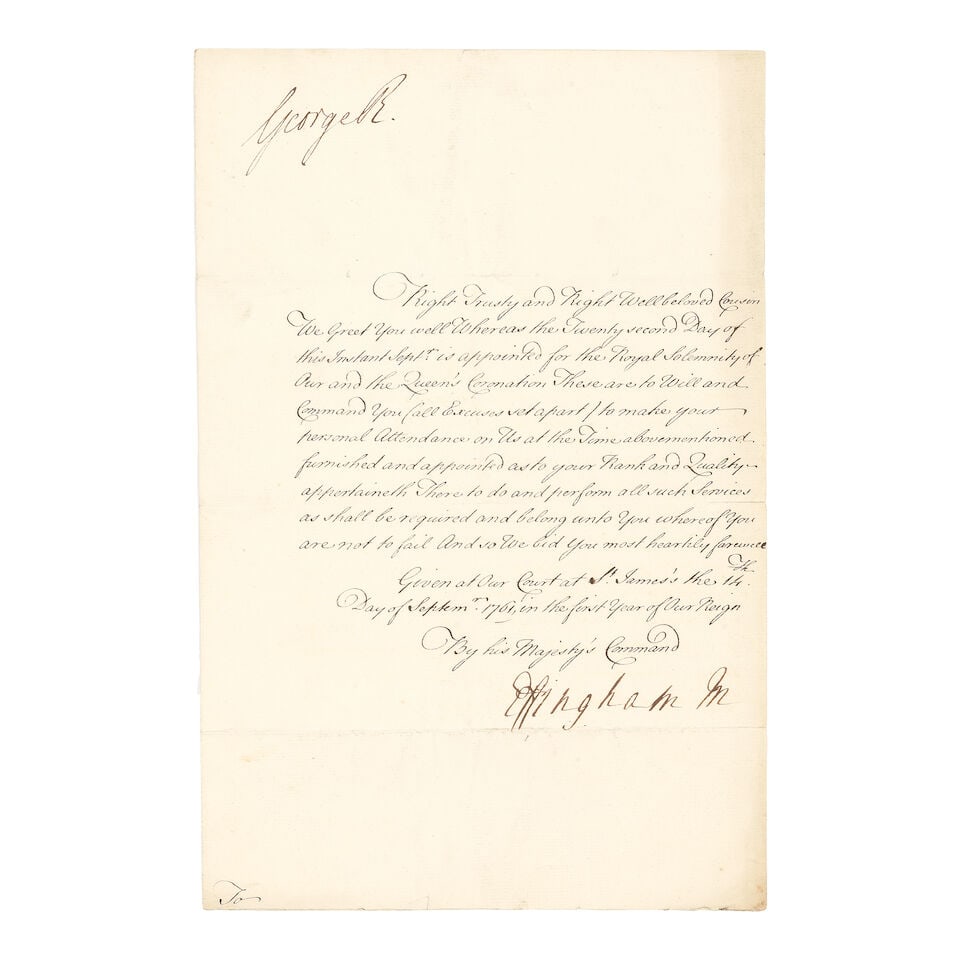 George R.
Right Trusty and Right Wellbeloved Cousin
We Greet You well Whereas the Twenty second Day of
this Instant Septr. is appointed for the Royal Solemnity of
Our and the Queen's Coronation These are to Will and
Command You (all Excuses set apart) to make your
personal Attendance on Us at the Time abovementioned
furnished and appointed as to your Rank and Quality
appertaineth There to do and perform all such Services
as shall be required and belong unto You whereof You
are not to fail And so We bid You most heartily farewell
Given at Our Court at St. James's the 14th.
Day of Septemr. 1761, in the first Year of Our Reign
By his Majesty's Command
Effingham M
To